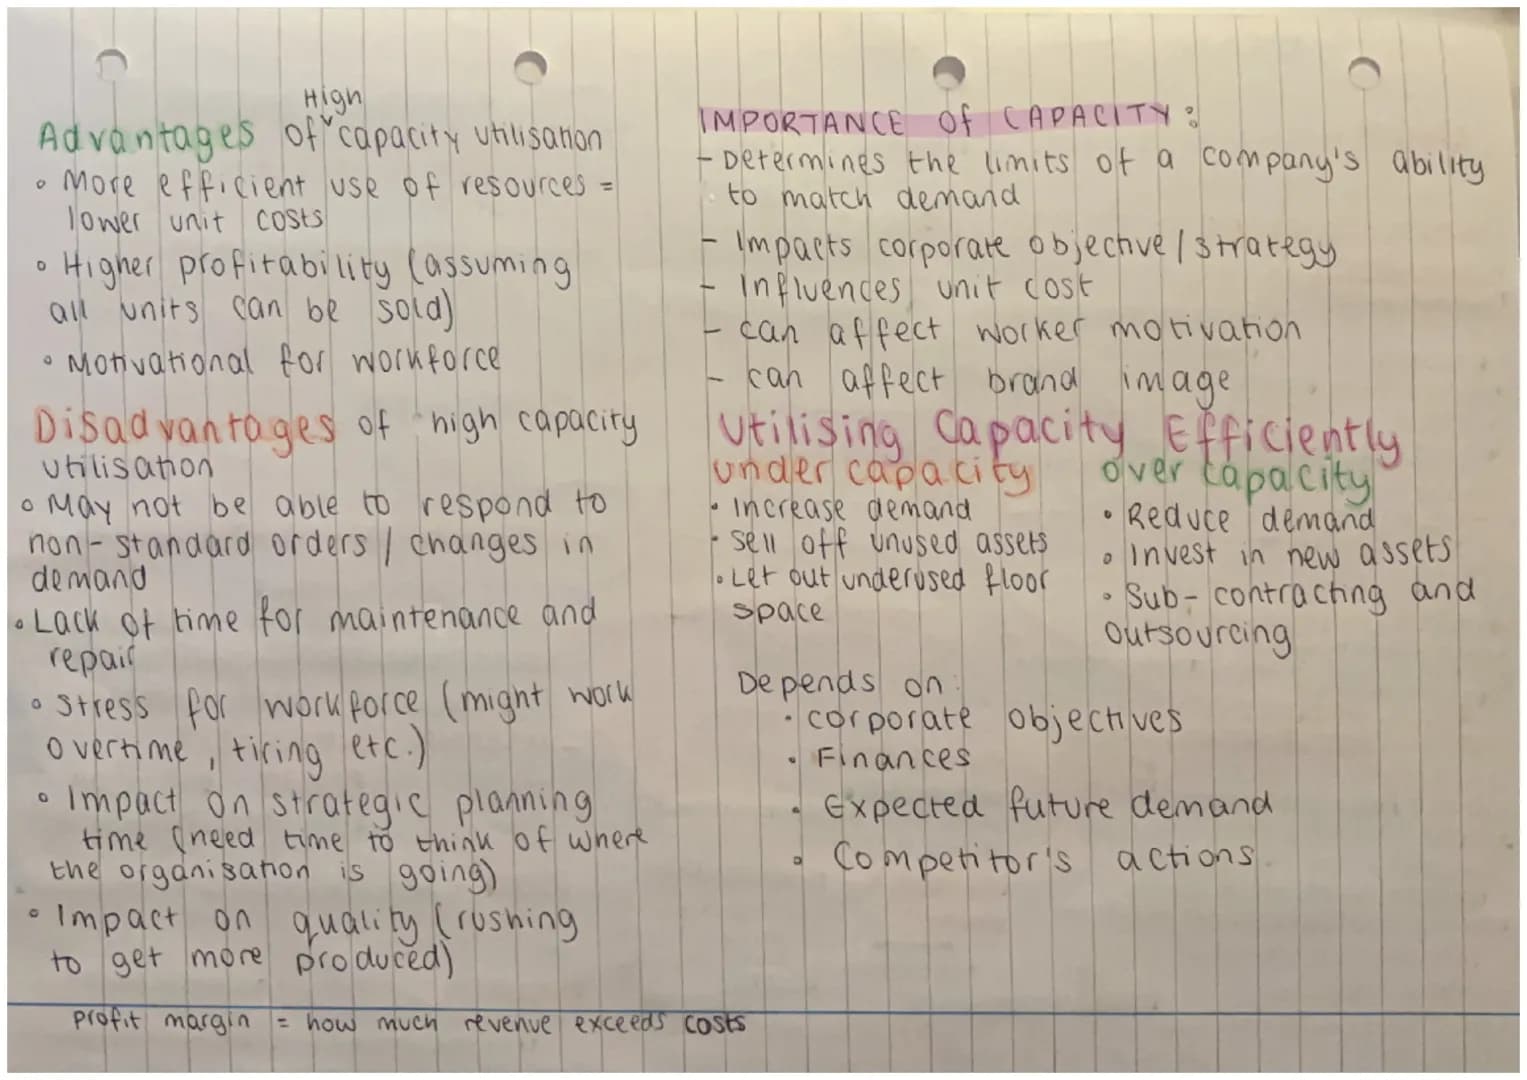 Advantages of High capacity utilisation
• More efficient use of resources =
lower unit costs
• Higher profitability (assuming
all units can be sold)
• Motivational for workforce
Disadvantages of high capacity
utilisation
• May not be able to respond to
non-standard orders / changes in
demand
• Lack of time for maintenance and
repair
• Stress for workforce (might work
overtime, tiring etc.)
• Impact on strategic planning
time (need time to think of where
the organisation is going)
• Impact on quality (rushing
to get more produced)
profit margin = how much revenue exceeds costs
IMPORTANCE Of CAPACITY:
- Determines the limits of a company's ability
to match demand
- Impacts corporate objective / strategy
- Influences unit cost
- can affect worker motivation
- can affect brand image
Utilising Capacity Efficiently
under capacity
• Increase demand
• Sell off unused assets
• Let out underused floor
space
over capacity
• Reduce demand
• Invest in new assets
• Sub-contracting and
Outsourcing
Depends on:
• corporate objectives
• Finances
• Expected future demand
• Competitor's actions.